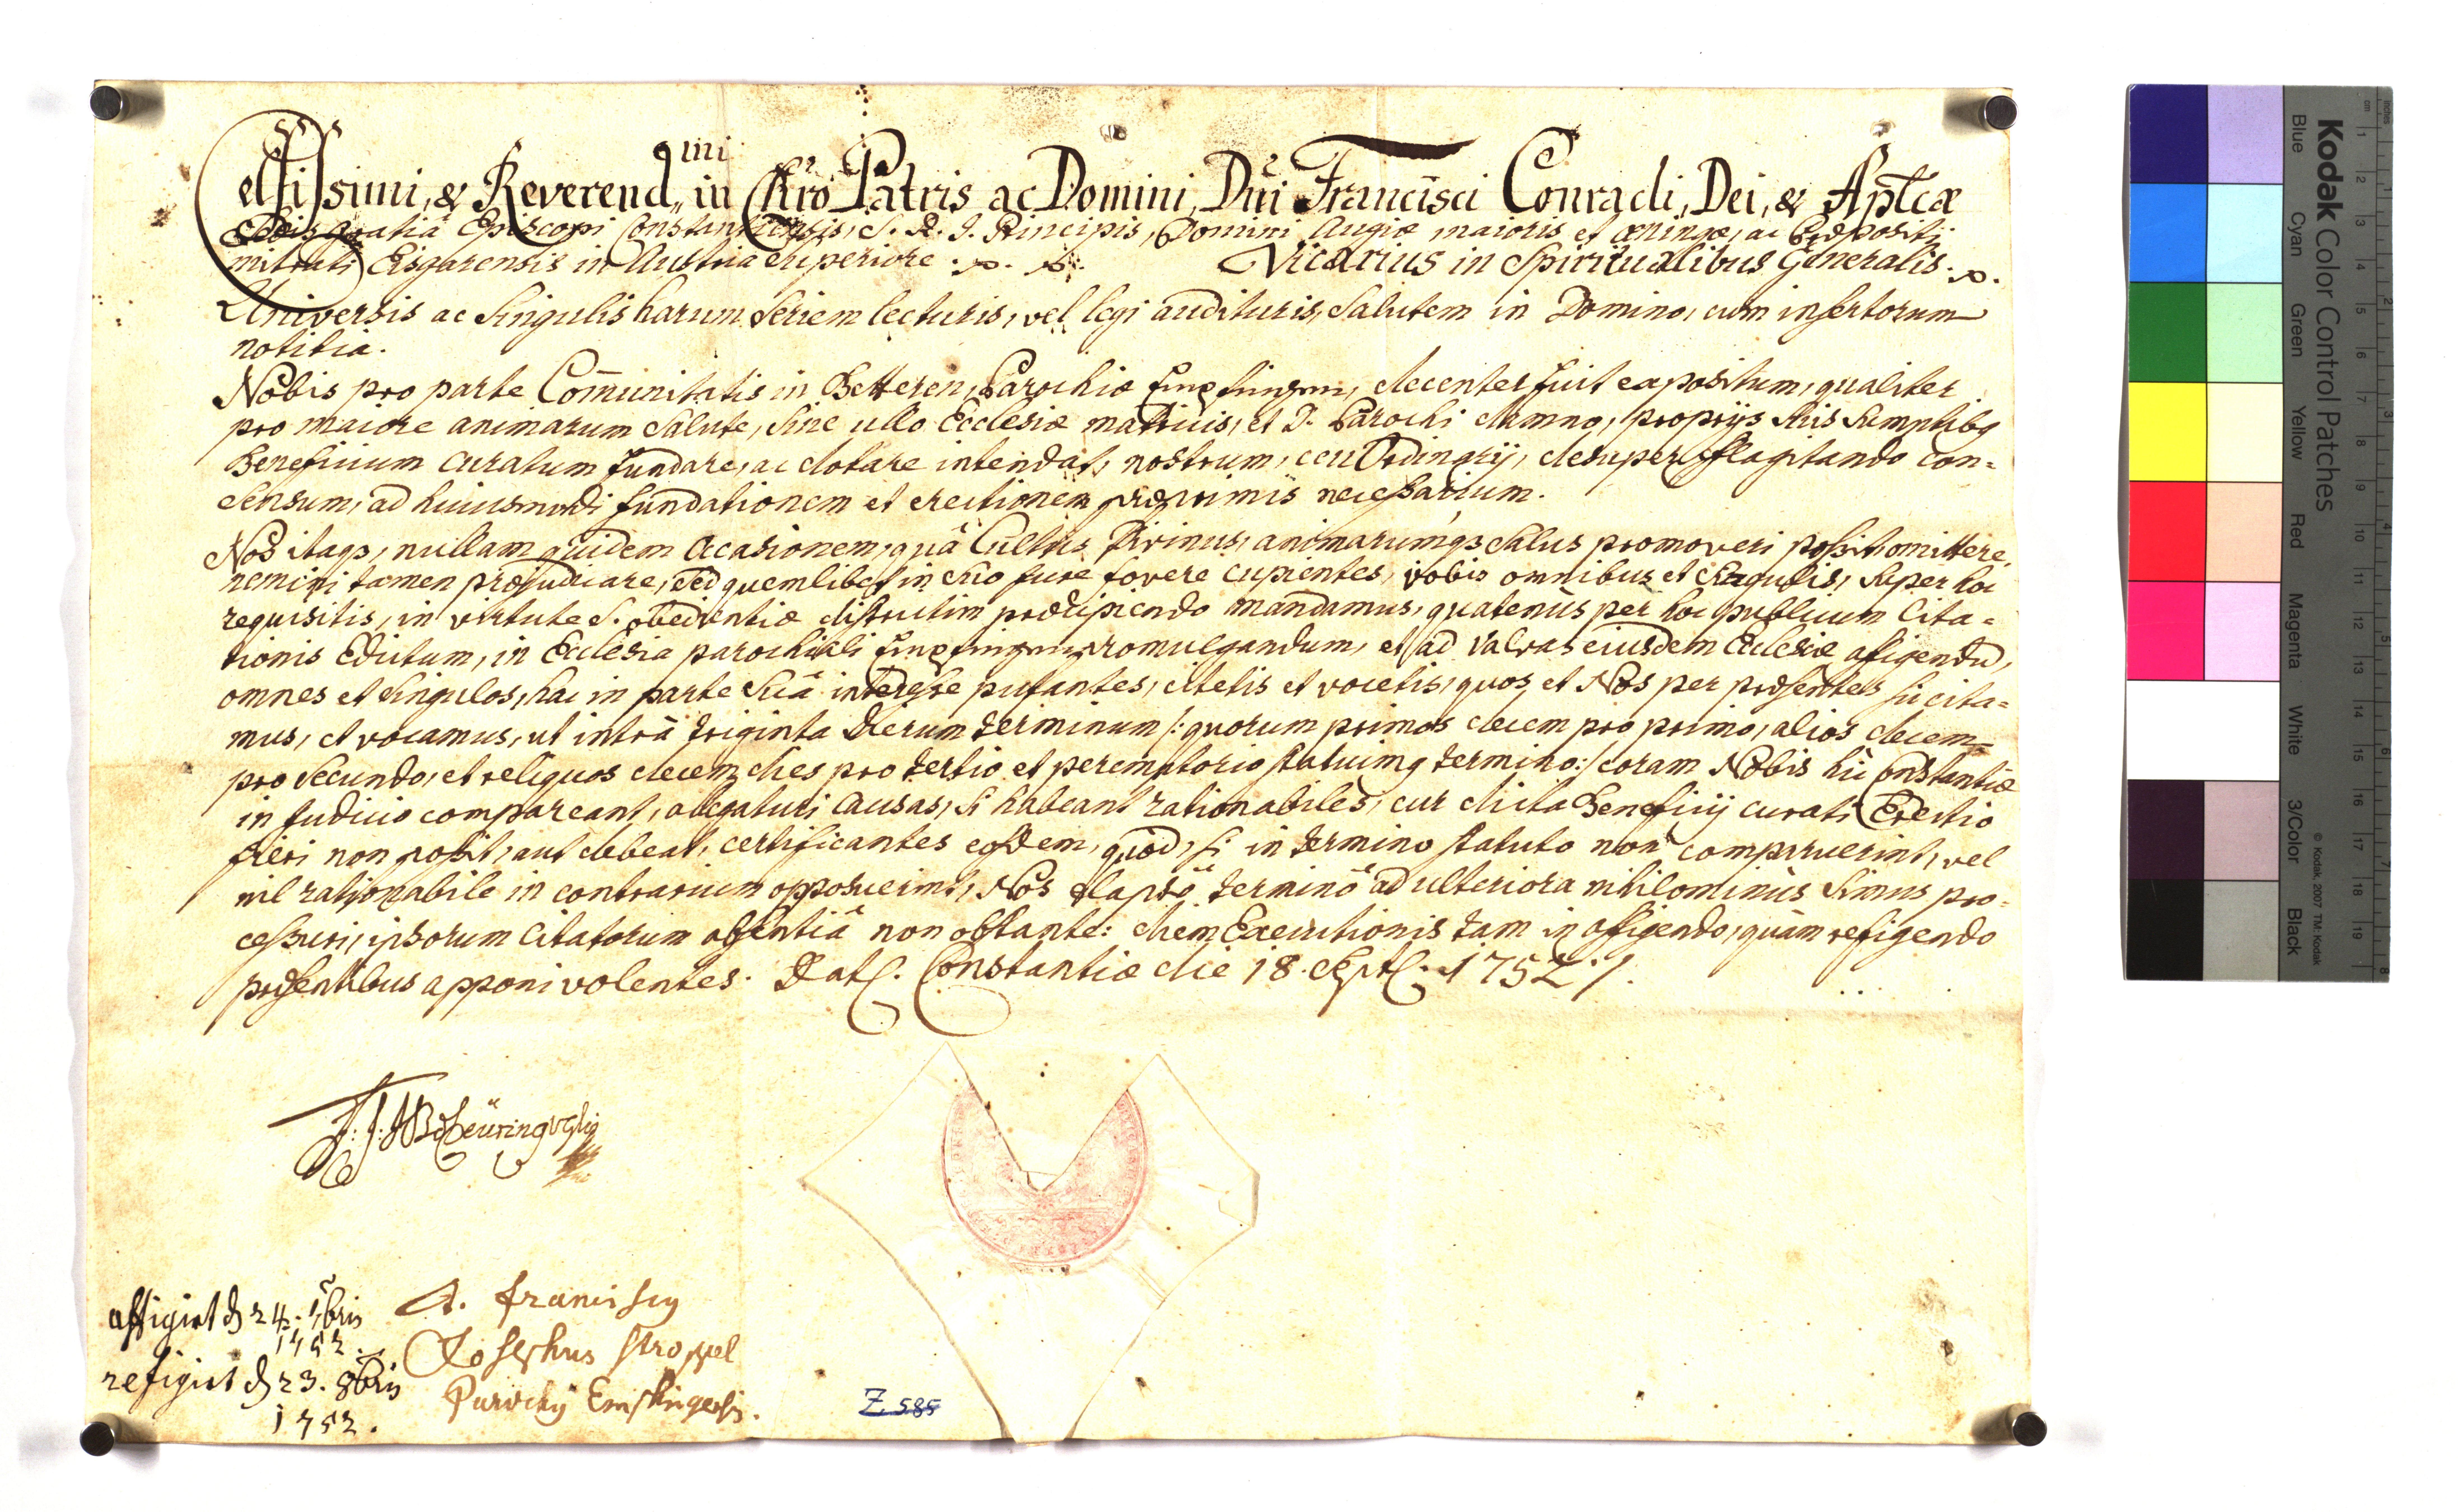 Celsissimi, & Reverend,,mi in Chro Patris ac Domini, Dni Francisci Conradi, Dei, & Aplicæ
Sedis gratiâ Episcopi Constantiensis, S. R. I. Principis, Domini Augiæ maioris et Œningæ, ac Præpositi
mitrati Eisgarensis in Austria superiore. Vicarius in Spiritualibus Generalis.
Universis ac Singulis harum Seriem lecturis, vel legi audituris, Salutem in Domino, cum insertorum
notitia.
Nobis pro parte Com̄unitatis in Betteren, Parochiæ decenter fuit expositum, qualiter
pro maiore animarum Salute, Sine ullo Ecclesiæ matricis, et D. Parochi damno, proprijs Suis Sumptibq
Beneficium curatum fundare, ac dotare intendat, nostrum, ceu Ordinarij, desuper flagitando con=
Sensum, ad huiusmodi fundationem et erectionem præprimis necessarium.
Nos itaqz, nullam quidem occasionem, quâ Cultus Divinus, animarumqz Salus promoveri possit, omittere,
nemini tamen præjudicare, Sed quemlibet in Suo jure fovere cupientes, vobis omnibus et Singulis, Super hoc
requisitis, in virtute S. obedientiæ districtim præcipiendo mandamus, quatenùs per hoc publicum Cita=
tionis Edictum, in Ecclesia parochiali promulgandum, et ad valvas eiusdem Ecclesiæ affigendū,
omnes et Singulos, hac in parte Suâ interesse putantes, citetis et vocetis, quos et Nos per præsentes Sic cita=
mus, et vocamus, ut intrà triginta dierum terminum /: quorum primos decem pro primo, alios decem
pro Secundo, et reliquos decem dies pro tertio et peremptorio statuimq termino :/ coram Nobis hic Constantiæ
in Judicio compareant, allegaturi Causas, Si habeant rationabiles, cur dicta Beneficij curati Erectio
fieri non possit, aut debeat, certificantes eosdem, quòd, si in termino statuto non comparuerint, vel
nil rationabile in contrarium opposuerint, Nos elapsô terminô ad ulteriora nihilominùs Simus pro=
cessuri, ipsorum Citatorum absentiâ non obstante: diem Executionis tam in affigendo, quàm refigendo
præsentibus apponi volentes. Dat. Constantiæ die 18. Sept. 1752 /.
affigirt d 24. 7bris
1752.
refigirt d 23. 8bris
1752.
A. Franciscq
Josephus Stroppel
Parochq
Z 585
Kodak Color Control Patches
Blue Cyan Green Yellow Red Magenta White 3/Color Black
© Kodak, 2007 TM: Kodak
inches
cm 1 2 3 4 5 6 7 8 9 10 11 12 13 14 15 16 17 18 19